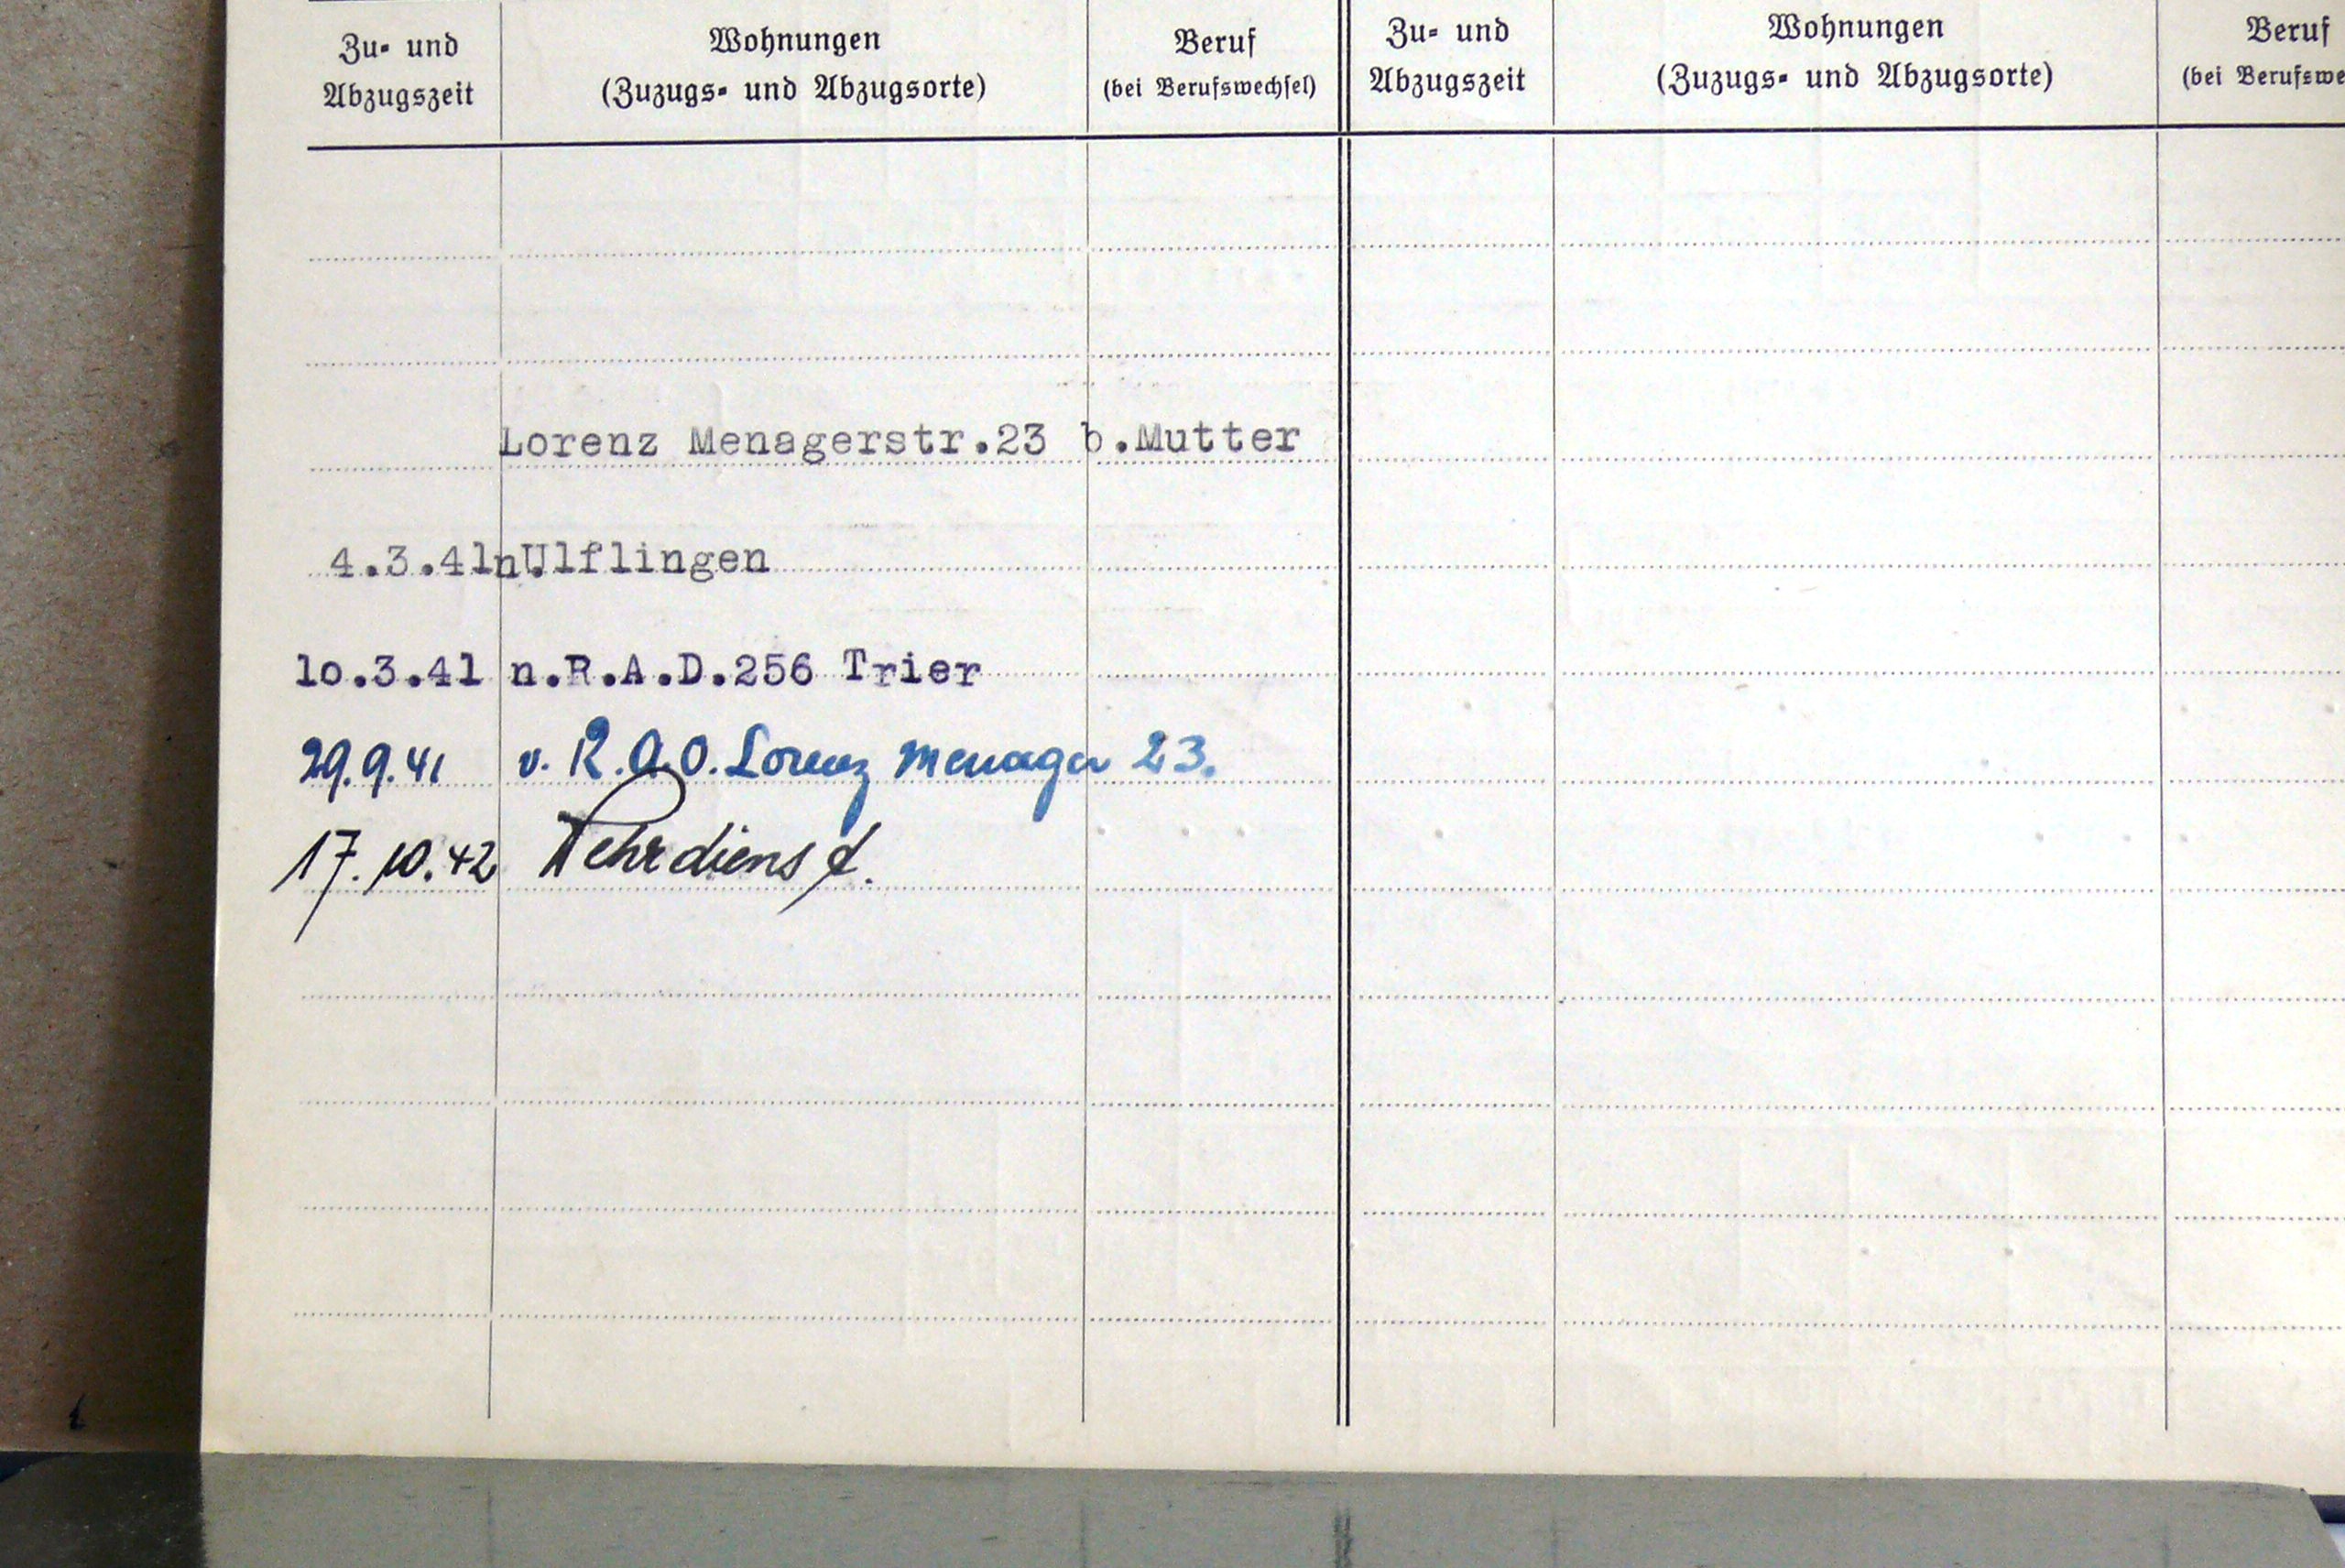 Zu- und Abzugszeit
Wohnungen
(Zuzugs- und Abzugsorte)
Beruf
(bei Berufswechsel)
Zu- und Abzugszeit
Wohnungen
(Zuzugs- und Abzugsorte)
Beruf
(bei Berufswe
Lorenz Menagerstr.23 b.Mutter
4.3.41n.Ulflingen
lo.3.41 n.R.A.D.256 Trier
29.9.41 v. R.A.D. Lorenz Menager 23.
17.10.42 Wehrdienst.